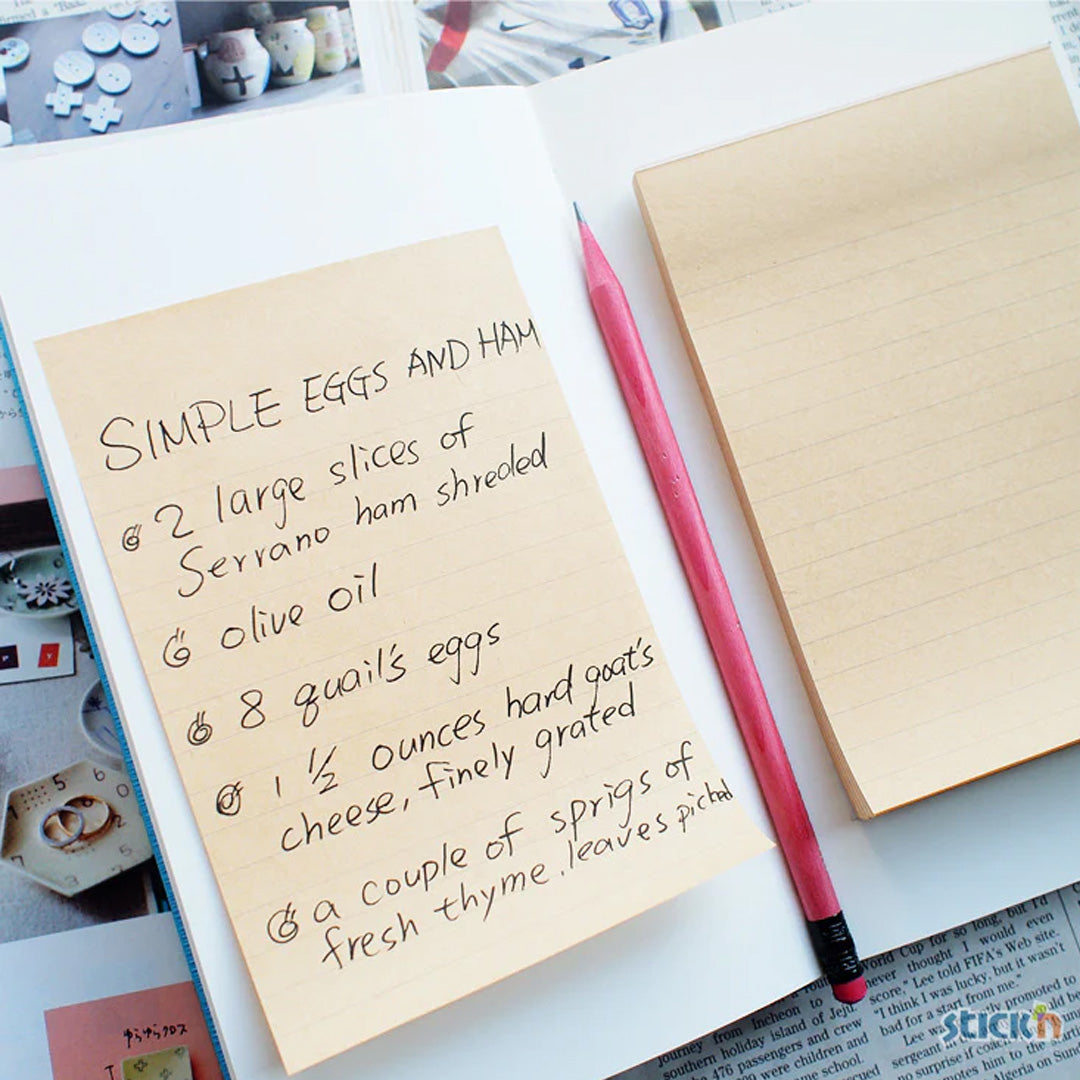 SIMPLE EGGS AND HAM
2 large slices of
Serrano ham shreded
olive oil
8 quail's eggs
1 1/2 ounces hard goat's
cheese, finely grated
a couple of sprigs of
fresh thyme, leaves picked
ゆらゆらクロス
P Y
World Cup for so long, but I'd
never thought I would even
score," Lee told FIFA's Web site.
"I think I was lucky, but it wasn't
bad for a start from me."
promoted to
journey from Incheon to
southern holiday island of Jeju.
476 passengers and crew
were children and
school.
no surprise if
Algeria on Sun
STICK'N